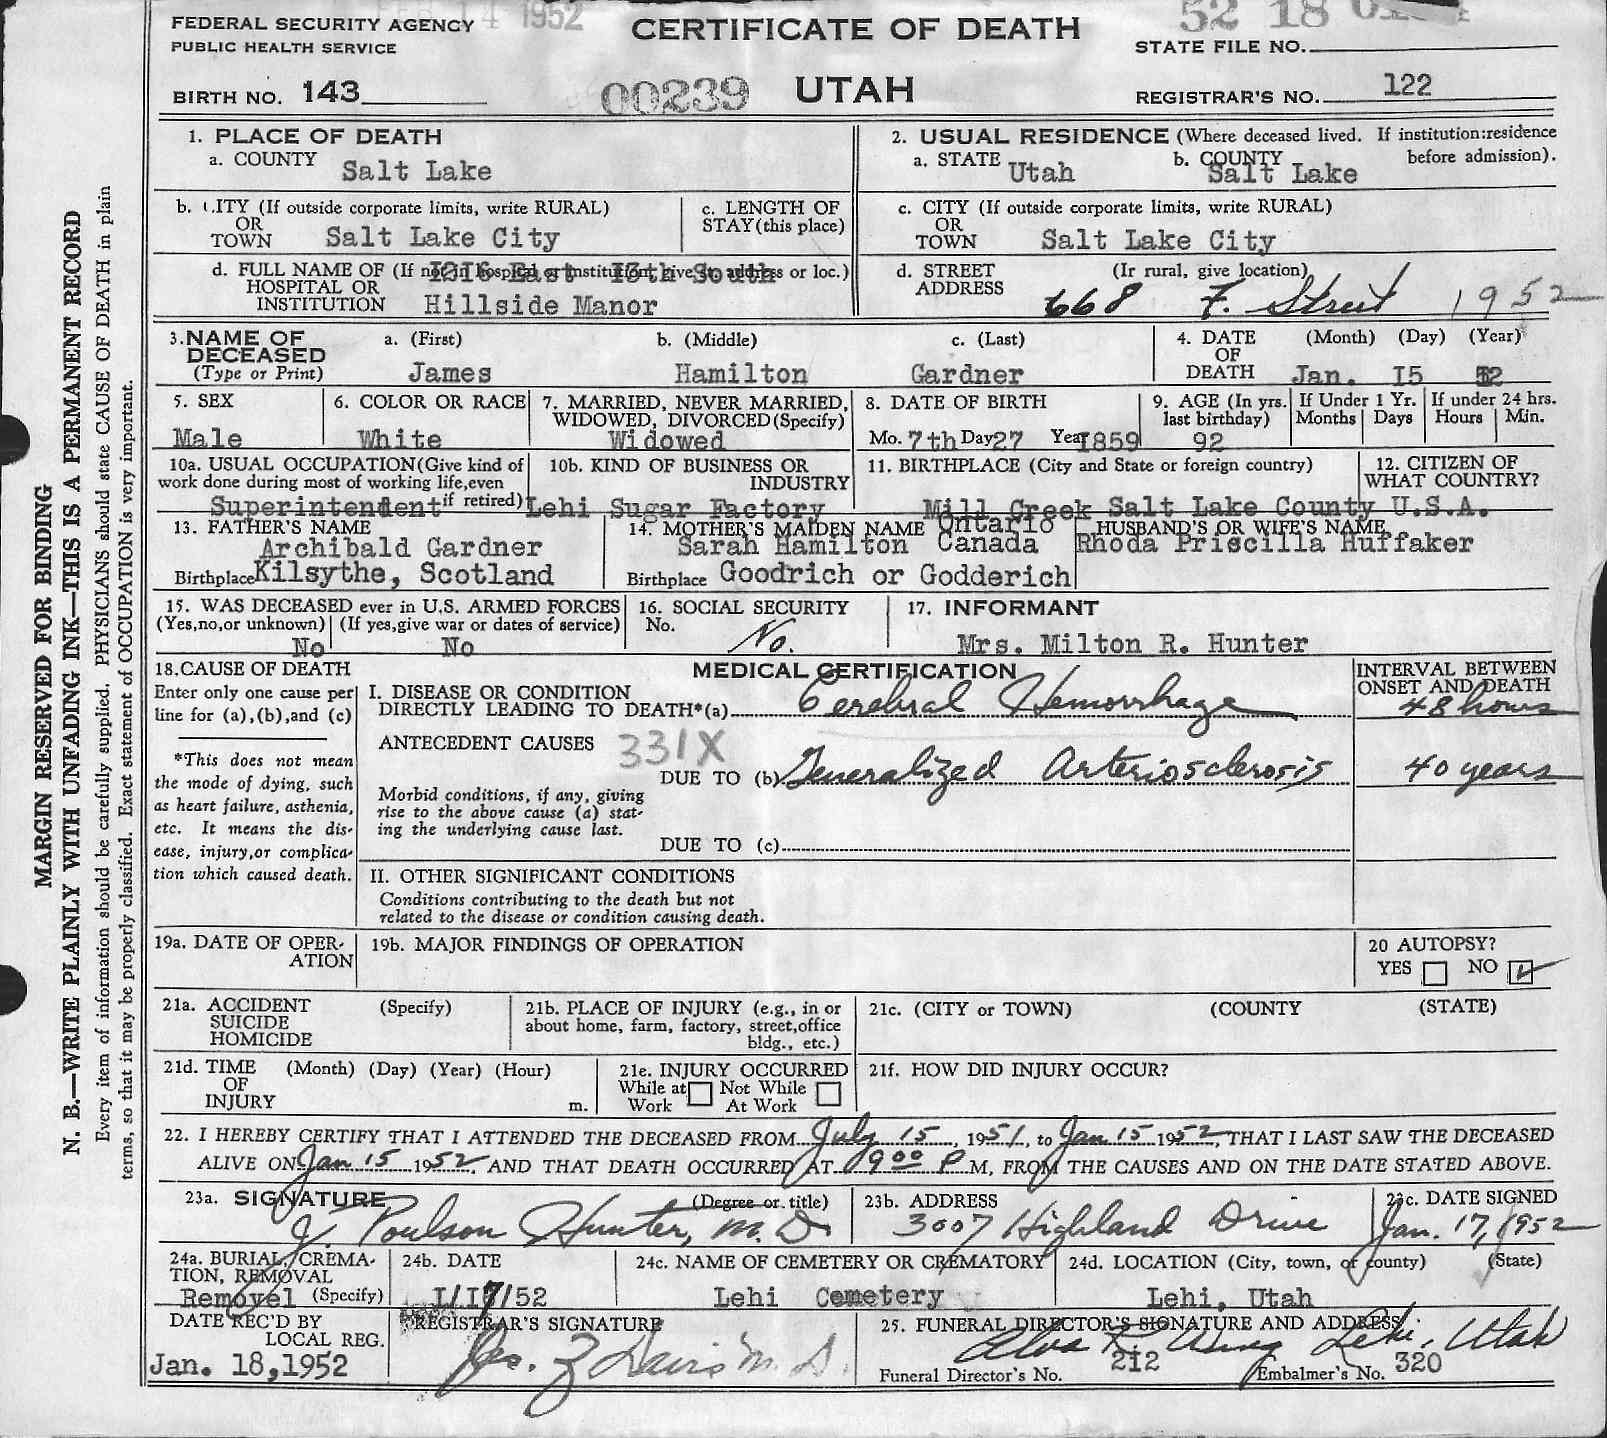 FEDERAL SECURITY AGENCY
PUBLIC HEALTH SERVICE
14 1952
CERTIFICATE OF DEATH
52 18
STATE FILE NO.
BIRTH NO. 143
00239
UTAH
REGISTRAR'S NO. 122
1. PLACE OF DEATH
a. COUNTY Salt Lake
2. USUAL RESIDENCE (Where deceased lived. If institution:residence before admission).
a. STATE Utah b. COUNTY Salt Lake
b. CITY (If outside corporate limits, write RURAL)
OR
TOWN Salt Lake City
c. LENGTH OF
STAY(this place)
c. CITY (If outside corporate limits, write RURAL)
OR
TOWN Salt Lake City
d. FULL NAME OF (If not in hospital or institution, give st. address or loc.)
HOSPITAL OR
INSTITUTION
1216 East 13th South
Hillside Manor
d. STREET
ADDRESS
(Ir rural, give location)
668 F. Street 1952
3. NAME OF
DECEASED
(Type or Print)
a. (First) b. (Middle) c. (Last)
James Hamilton Gardner
4. DATE
OF
DEATH
(Month) (Day) (Year)
Jan. I5 52
5. SEX
Male
6. COLOR OR RACE
White
7. MARRIED, NEVER MARRIED,
WIDOWED, DIVORCED(Specify)
Widowed
8. DATE OF BIRTH
Mo. 7th Day 27 Year 1859
9. AGE (In yrs.
last birthday)
92
If Under 1 Yr.
Months Days
If under 24 hrs.
Hours Min.
10a. USUAL OCCUPATION(Give kind of
work done during most of working life,even
if retired)
Superintendent
10b. KIND OF BUSINESS OR
INDUSTRY
Lehi Sugar Factory
11. BIRTHPLACE (City and State or foreign country)
Mill Creek Salt Lake County
12. CITIZEN OF
WHAT COUNTRY?
U.S.A.
13. FATHER'S NAME
Archibald Gardner
Birthplace Kilsythe, Scotland
14. MOTHER'S MAIDEN NAME Ontario
Sarah Hamilton Canada
Birthplace Goodrich or Godderich
HUSBAND'S OR WIFE'S NAME
Rhoda Priscilla Huffaker
15. WAS DECEASED ever in U.S. ARMED FORCES
(Yes,no,or unknown) (If yes,give war or dates of service)
No No
16. SOCIAL SECURITY
No.
No.
17. INFORMANT
Mrs. Milton R. Hunter
18.CAUSE OF DEATH
Enter only one cause per
line for (a),(b),and (c)
*This does not mean
the mode of dying, such
as heart failure, asthenia,
etc. It means the dis-
ease, injury,or complica-
tion which caused death.
MEDICAL CERTIFICATION
I. DISEASE OR CONDITION
DIRECTLY LEADING TO DEATH*(a) Cerebral Hemorrhage
ANTECEDENT CAUSES 331X
DUE TO (b) Generalized Arteriosclerosis
Morbid conditions, if any, giving
rise to the above cause (a) stat-
ing the underlying cause last.
DUE TO (c)
INTERVAL BETWEEN
ONSET AND DEATH
48 hours
40 years
II. OTHER SIGNIFICANT CONDITIONS
Conditions contributing to the death but not
related to the disease or condition causing death.
19a. DATE OF OPER-
ATION
19b. MAJOR FINDINGS OF OPERATION
20 AUTOPSY?
YES NO
21a. ACCIDENT
SUICIDE
HOMICIDE
(Specify)
21b. PLACE OF INJURY (e.g., in or
about home, farm, factory, street,office
bldg., etc.)
21c. (CITY or TOWN) (COUNTY (STATE)
21d. TIME
OF
INJURY
(Month) (Day) (Year) (Hour)
m.
21e. INJURY OCCURRED
While at
Work
Not While
At Work
21f. HOW DID INJURY OCCUR?
22. I HEREBY CERTIFY THAT I ATTENDED THE DECEASED FROM July 15, 1951, to Jan 15 1952, THAT I LAST SAW THE DECEASED
ALIVE ON Jan 15 1952, AND THAT DEATH OCCURRED AT 9 00 P M, FROM THE CAUSES AND ON THE DATE STATED ABOVE.
23a. SIGNATURE (Degree or title)
J. Poulson Hunter, M.D.
23b. ADDRESS
3007 Highland Drive
23c. DATE SIGNED
Jan. 17, 1952
24a. BURIAL, CREMA-
TION, REMOVAL
(Specify)
Removel
24b. DATE
I/I7/52
24c. NAME OF CEMETERY OR CREMATORY
Lehi Cemetery
24d. LOCATION (City, town, or county) (State)
Lehi, Utah
DATE REC'D BY
LOCAL REG.
Jan. 18,1952
REGISTRAR'S SIGNATURE
Jas. Z Davis M.D.
25. FUNERAL DIRECTOR'S SIGNATURE AND ADDRESS
Elva R. Wing Lehi, Utah
Funeral Director's No. 212
Embalmer's No. 320
MARGIN RESERVED FOR BINDING
N. B.—WRITE PLAINLY WITH UNFADING INK—THIS IS A PERMANENT RECORD
Every item of information should be carefully supplied. PHYSICIANS should state CAUSE OF DEATH in plain
terms, so that it may be properly classified. Exact statement of OCCUPATION is very important.